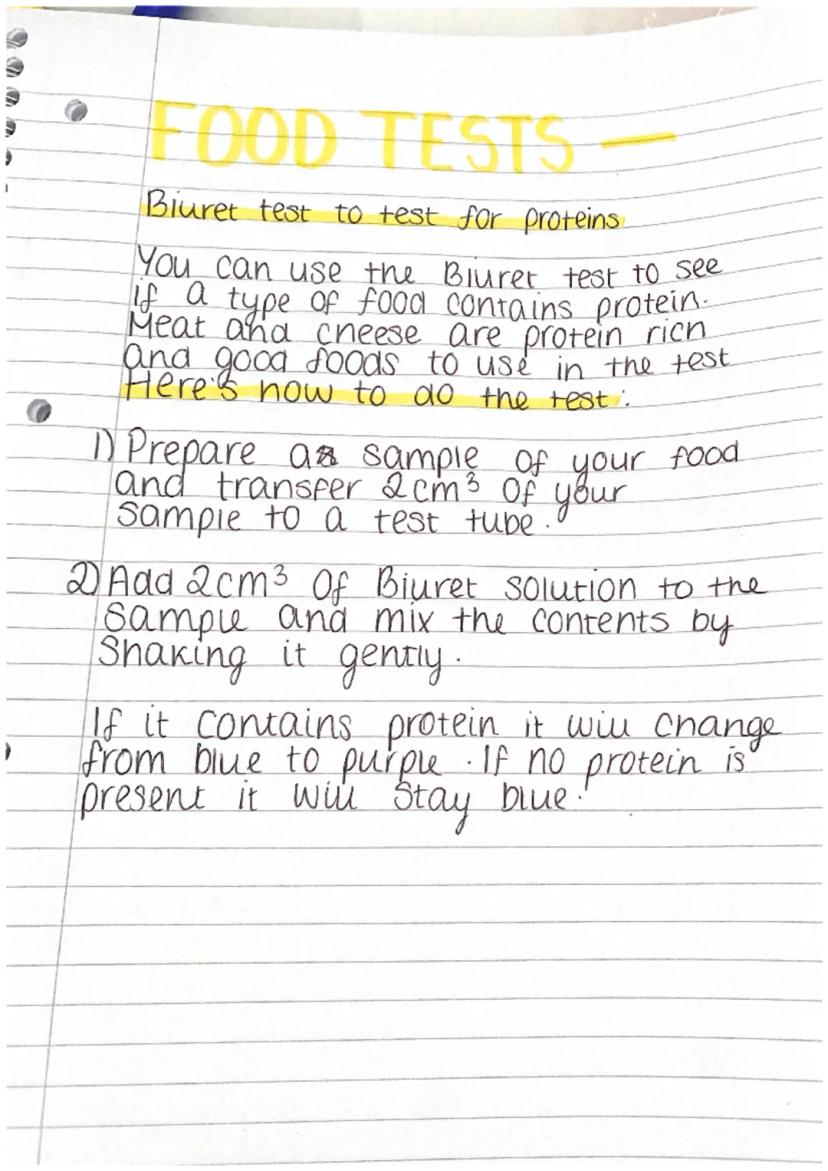 FOOD TESTS —
Biuret test to test for proteins
You can use the Biuret test to see
if a type of food contains protein.
Meat and cheese are protein rich
and good foods to use in the test
Here's how to do the test:
1) Prepare a sample of your food
and transfer 2cm³ of your
sample to a test tube.
2) Add 2cm³ of Biuret solution to the
sample and mix the contents by
shaking it gently.
If it contains protein it will change
from blue to purple. If no protein is
present it will stay blue.